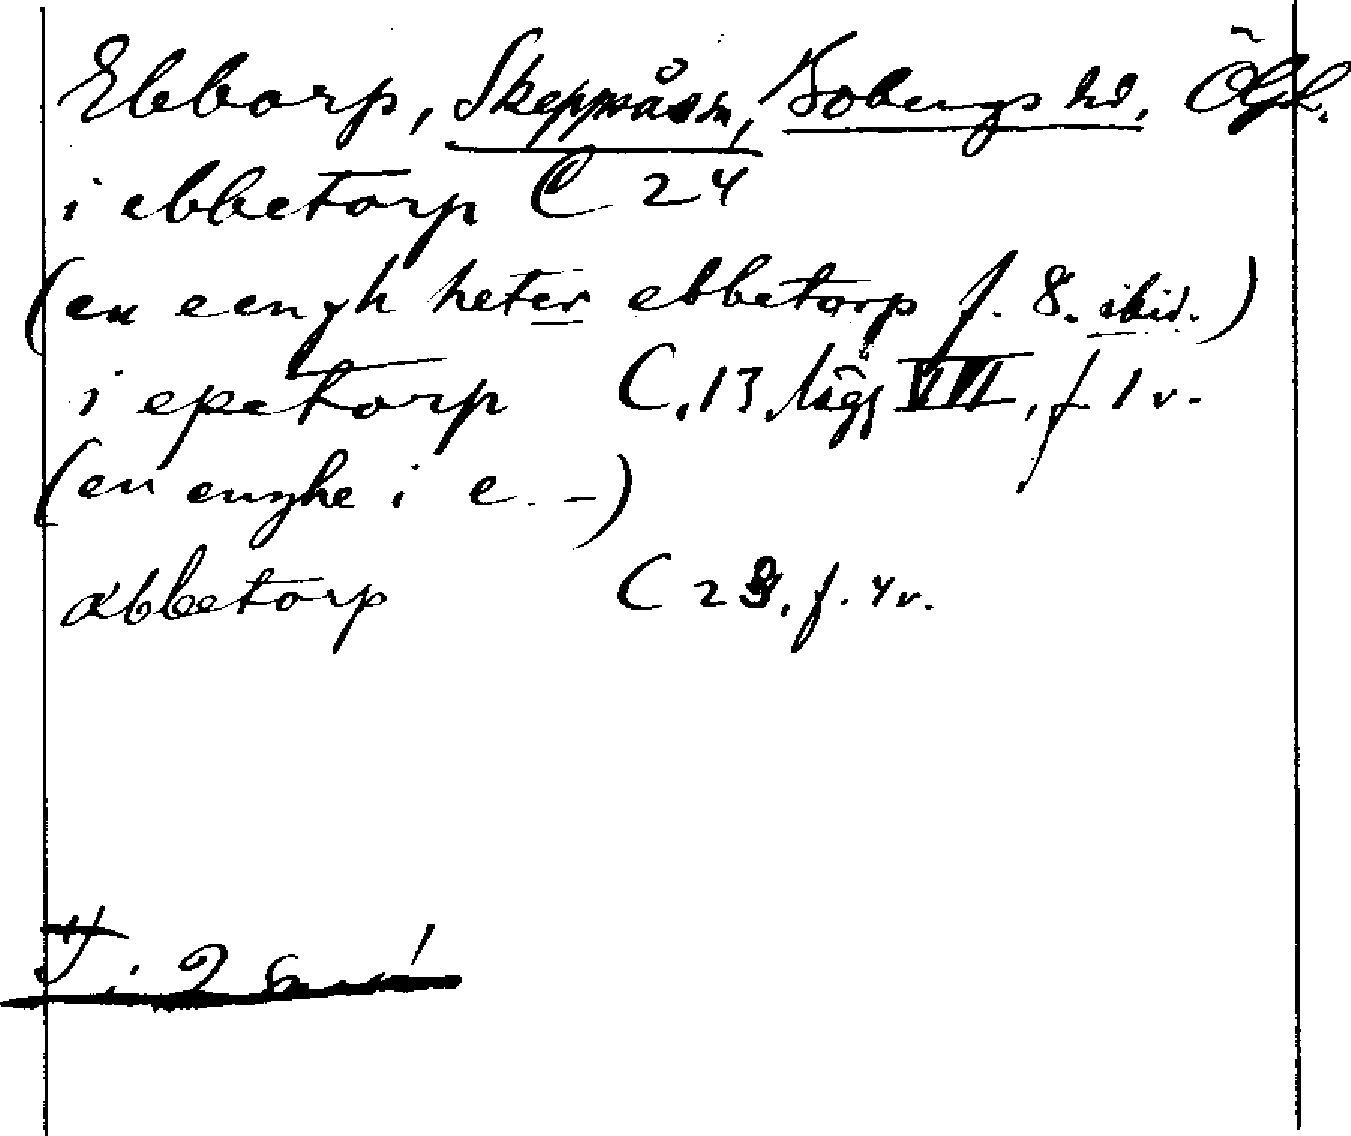 Ebborp, Skeppsås sn, Bobergs hd. Ögl.
i ebbetorp C 24
(en eengh heter ebbetorp f. 8. ibid.)
i epetorp C. 13, lägg VII, f 1 v.
(en enghe i e. -)
abbetorp C 29, f. 4v.
i 2